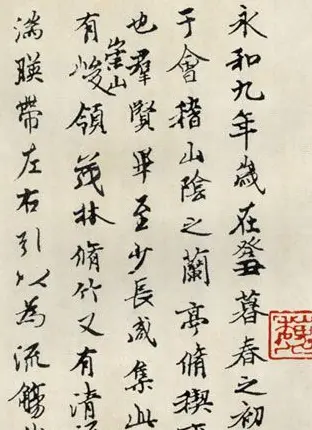 永和九年歲在癸丑暮春之初
于會稽山陰之蘭亭脩稧
也羣賢畢至少長咸集此
有崇山峻領茂林脩竹又有清
湍暎帶左右引以為流觴